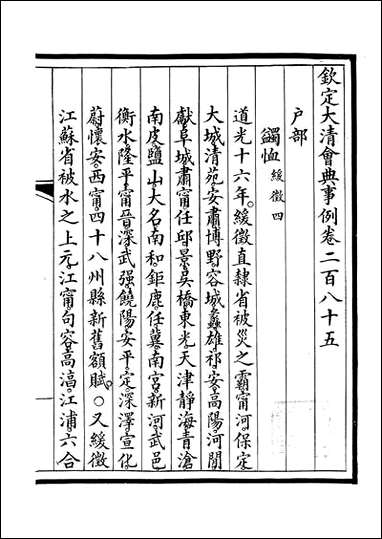 欽定大清會典事例卷二百八十五
戶部
蠲恤緩徵四
道光十六年。緩徵直隸省被災之霸甯河保定。
大城清苑安肅博野容城蠡雄祁安高陽河閒
獻阜城肅甯任邱景吳橋東光天津靜海青滄
南皮鹽山大名南和鉅鹿任冀南宮新河武邑
衡水隆平甯晉深武強饒陽安平定深澤宣化
蔚懷安西甯四十八州縣新舊額賦。○又緩徵
江蘇省被水之上元江甯句容高淳江浦六合